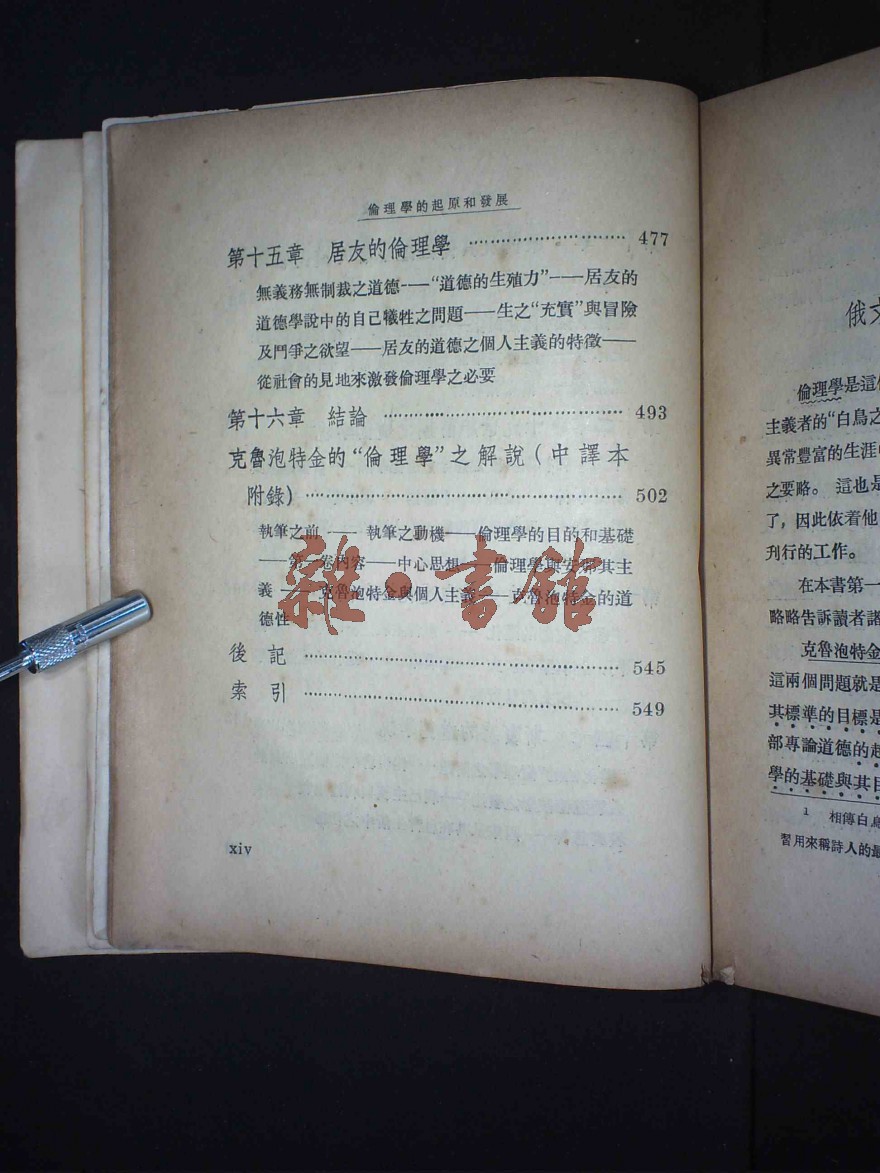 倫理學的起原和發展
第十五章　居友的倫理學 ………………………… 477
無義務無制裁之道德——“道德的生殖力”——居友的
道德學說中的自己犧牲之問題——生之“充實”與冒險
及鬥爭之欲望——居友的道德之個人主義的特徵——
從社會的見地來激發倫理學之必要
第十六章　結論 ………………………… 493
克魯泡特金的“倫理學”之解說(中譯本
附錄) ………………………… 502
執筆之前——執筆之動機——倫理學的目的和基礎
——第一卷內容——中心思想——倫理學與安那其主
義——克魯泡特金與個人主義——克魯泡特金的道
德性
後　記 ………………………… 545
索　引 ………………………… 549
xiv
雜·書館
俄文
倫理學是這
主義者的“白鳥之
異常豐富的生涯
之要略。這也是
了，因此依着他
刊行的工作。
在本書第一
略略告訴讀者諸
克魯泡特金
這兩個問題就是
其標準的目標是
部專論道德的起
學的基礎與其目
1 相傳白鳥
習用來稱詩人的最